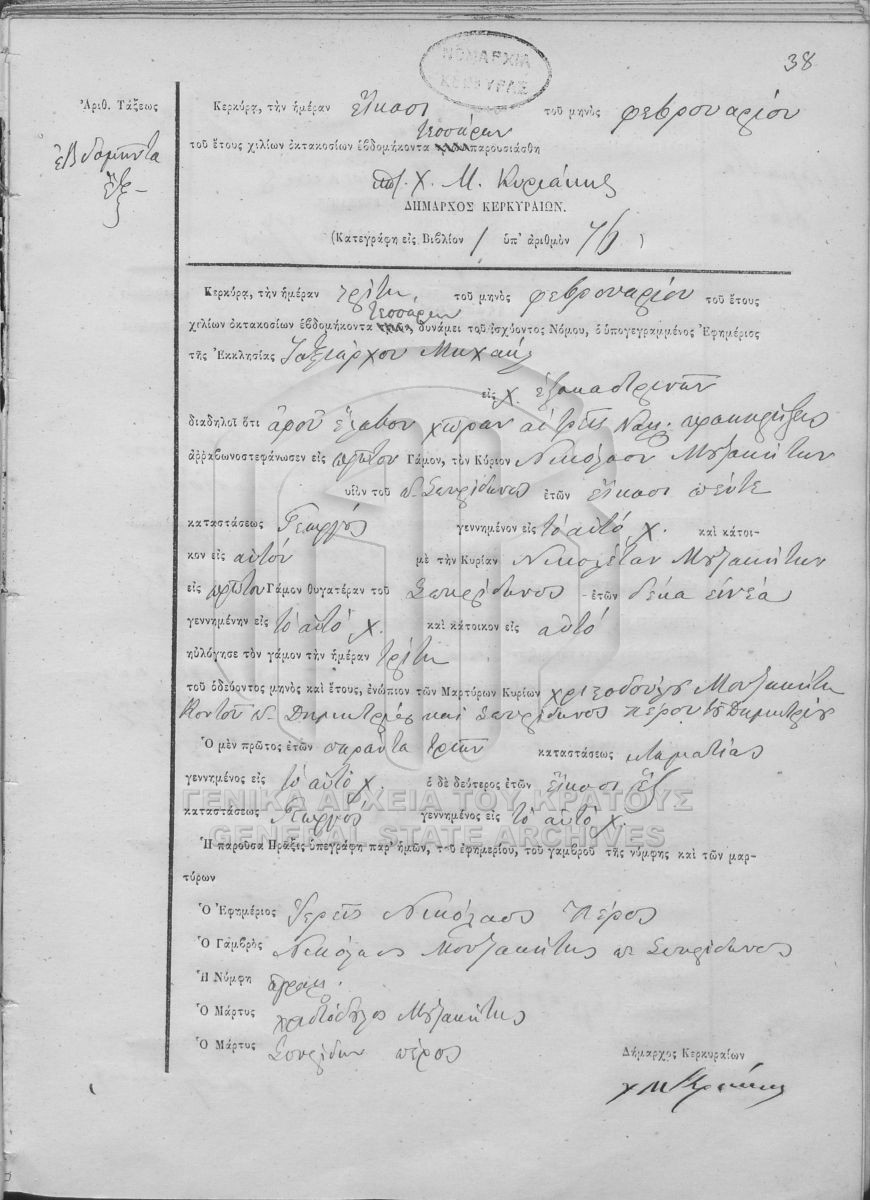 38
ΝΟΜΑΡΧΙΑ
ΚΕΡΚΥΡΑΣ
Ἀριθ. Τάξεως
ἑβδομῆντα
ἕξ
Κερκύρᾳ, τὴν ἡμέραν εἴκοσι τοῦ μηνὸς φεβρουαρίου
τεσσάρων
τοῦ ἔτους χιλίων ὀκτακοσίων ἑβδομήκοντα παρουσιάσθη
Χ. Μ. Κυριάκης
ΔΗΜΑΡΧΟΣ ΚΕΡΚΥΡΑΙΩΝ.
(Κατεγράφη εἰς Βιβλίον 1 ὑπ' ἀριθμὸν 76 )
Κερκύρᾳ, τὴν ἡμέραν τρίτη, τοῦ μηνὸς φεβρουαρίου τοῦ ἔτους
τεσσάρων
χιλίων ὀκτακοσίων ἑβδομήκοντα τρία, δυνάμει τοῦ ἰσχύοντος Νόμου, ὁ ὑπογεγραμμένος Ἐφημέριος
τῆς Ἐκκλησίας Ταξιάρχου Μηχαήλ
εἰς χ.
διαδηλοῖ ὅτι ἀφοῦ ἔλαβον χώραν αἱ τρεῖς
ἀρραβωνοστεφάνωσεν εἰς πρῶτον Γάμον, τὸν Κύριον Νικόλαον Μυζακήτην
υἱὸν τοῦ π. Σπυρίδωνος ἐτῶν εἴκοσι πέντε
καταστάσεως Γεωργός γεννημένον εἰς τὸ αὐτό χ. καὶ κάτοι-
κον εἰς αὐτόν μὲ τὴν Κυρίαν Νικολέταν Μυζακήτην
εἰς πρῶτον Γάμον θυγατέραν τοῦ Σπυρίδωνος ἐτῶν δέκα εἰνέα
γεννημένην εἰς τὸ αὐτό χ. καὶ κάτοικον εἰς αὐτό
ηὐλόγησε τὸν γάμον τὴν ἡμέραν τρίτη
τοῦ ὁδεύοντος μηνὸς καὶ ἔτους, ἐνώπιον τῶν Μαρτύρων Κυρίων χριζοδούλου Μουζακήτη
Κοντοῦ π. Δημητρίου καὶ Σπυρίδωνος πέρου τοῦ Δημητρίου
Ὁ μὲν πρῶτος ἐτῶν σαράντα τριῶν καταστάσεως κτηματίας
γεννημένος εἰς τὸ αὐτό χ. ὁ δὲ δεύτερος ἐτῶν εἴκοσι ἕξ
καταστάσεως Γεωργός γεννημένος εἰς τὸ αὐτό χ.
Ἡ παροῦσα Πρᾶξις ὑπεγράφη παρ' ἡμῶν, τοῦ ἐφημερίου, τοῦ γαμβροῦ τῆς νύμφης καὶ τῶν μαρ-
τύρων
Ὁ Ἐφημέριος Ἱερεὺς Νικόλαος Πέρος
Ὁ Γαμβρὸς Νικόλαος Μουζακήτης π. Σπυρίδωνος
Ἡ Νύμφη ἀγράμ.
Ὁ Μάρτυς χριστόδουλος Μυζακήτης
Ὁ Μάρτυς Σπυρίδων πέρος
Δήμαρχος Κερκυραίων
ΓΕΝΙΚΑ ΑΡΧΕΙΑ ΤΟΥ ΚΡΑΤΟΥΣ
GENERAL STATE ARCHIVES